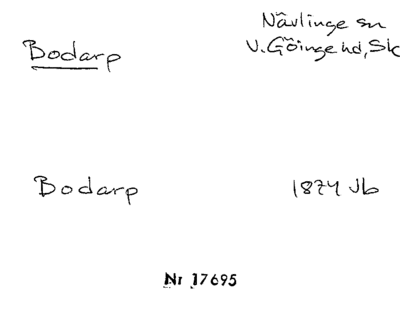 Bodarp
Nävlinge sn
V. Göinge hd, Sk
Bodarp
1874 Jb
Nr 17695